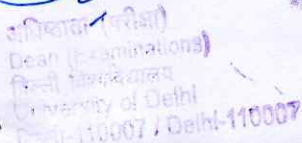 अधिष्ठाता (परीक्षा)
Dean (Examinations)
दिल्ली विश्वविद्यालय
University of Delhi
-110007 / Delhi-110007